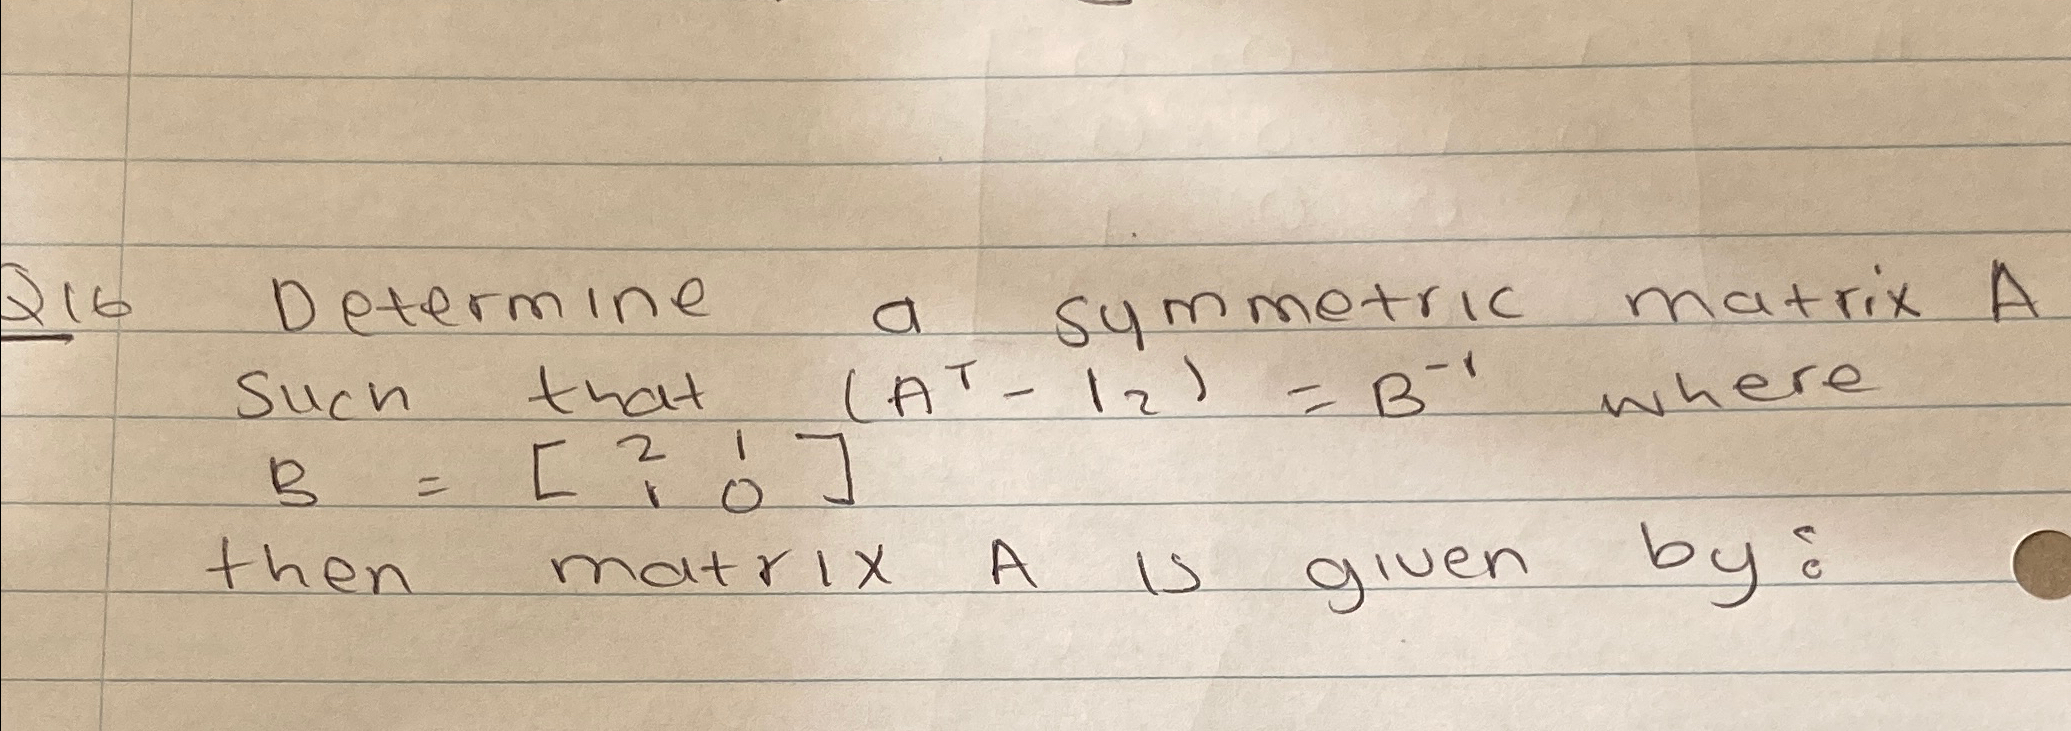 Q16 Determine a symmetric matrix A
Such that (Aᵀ - I₂) = B⁻¹ where
B = [ 2 1
1 0 ]
then matrix A is given by: